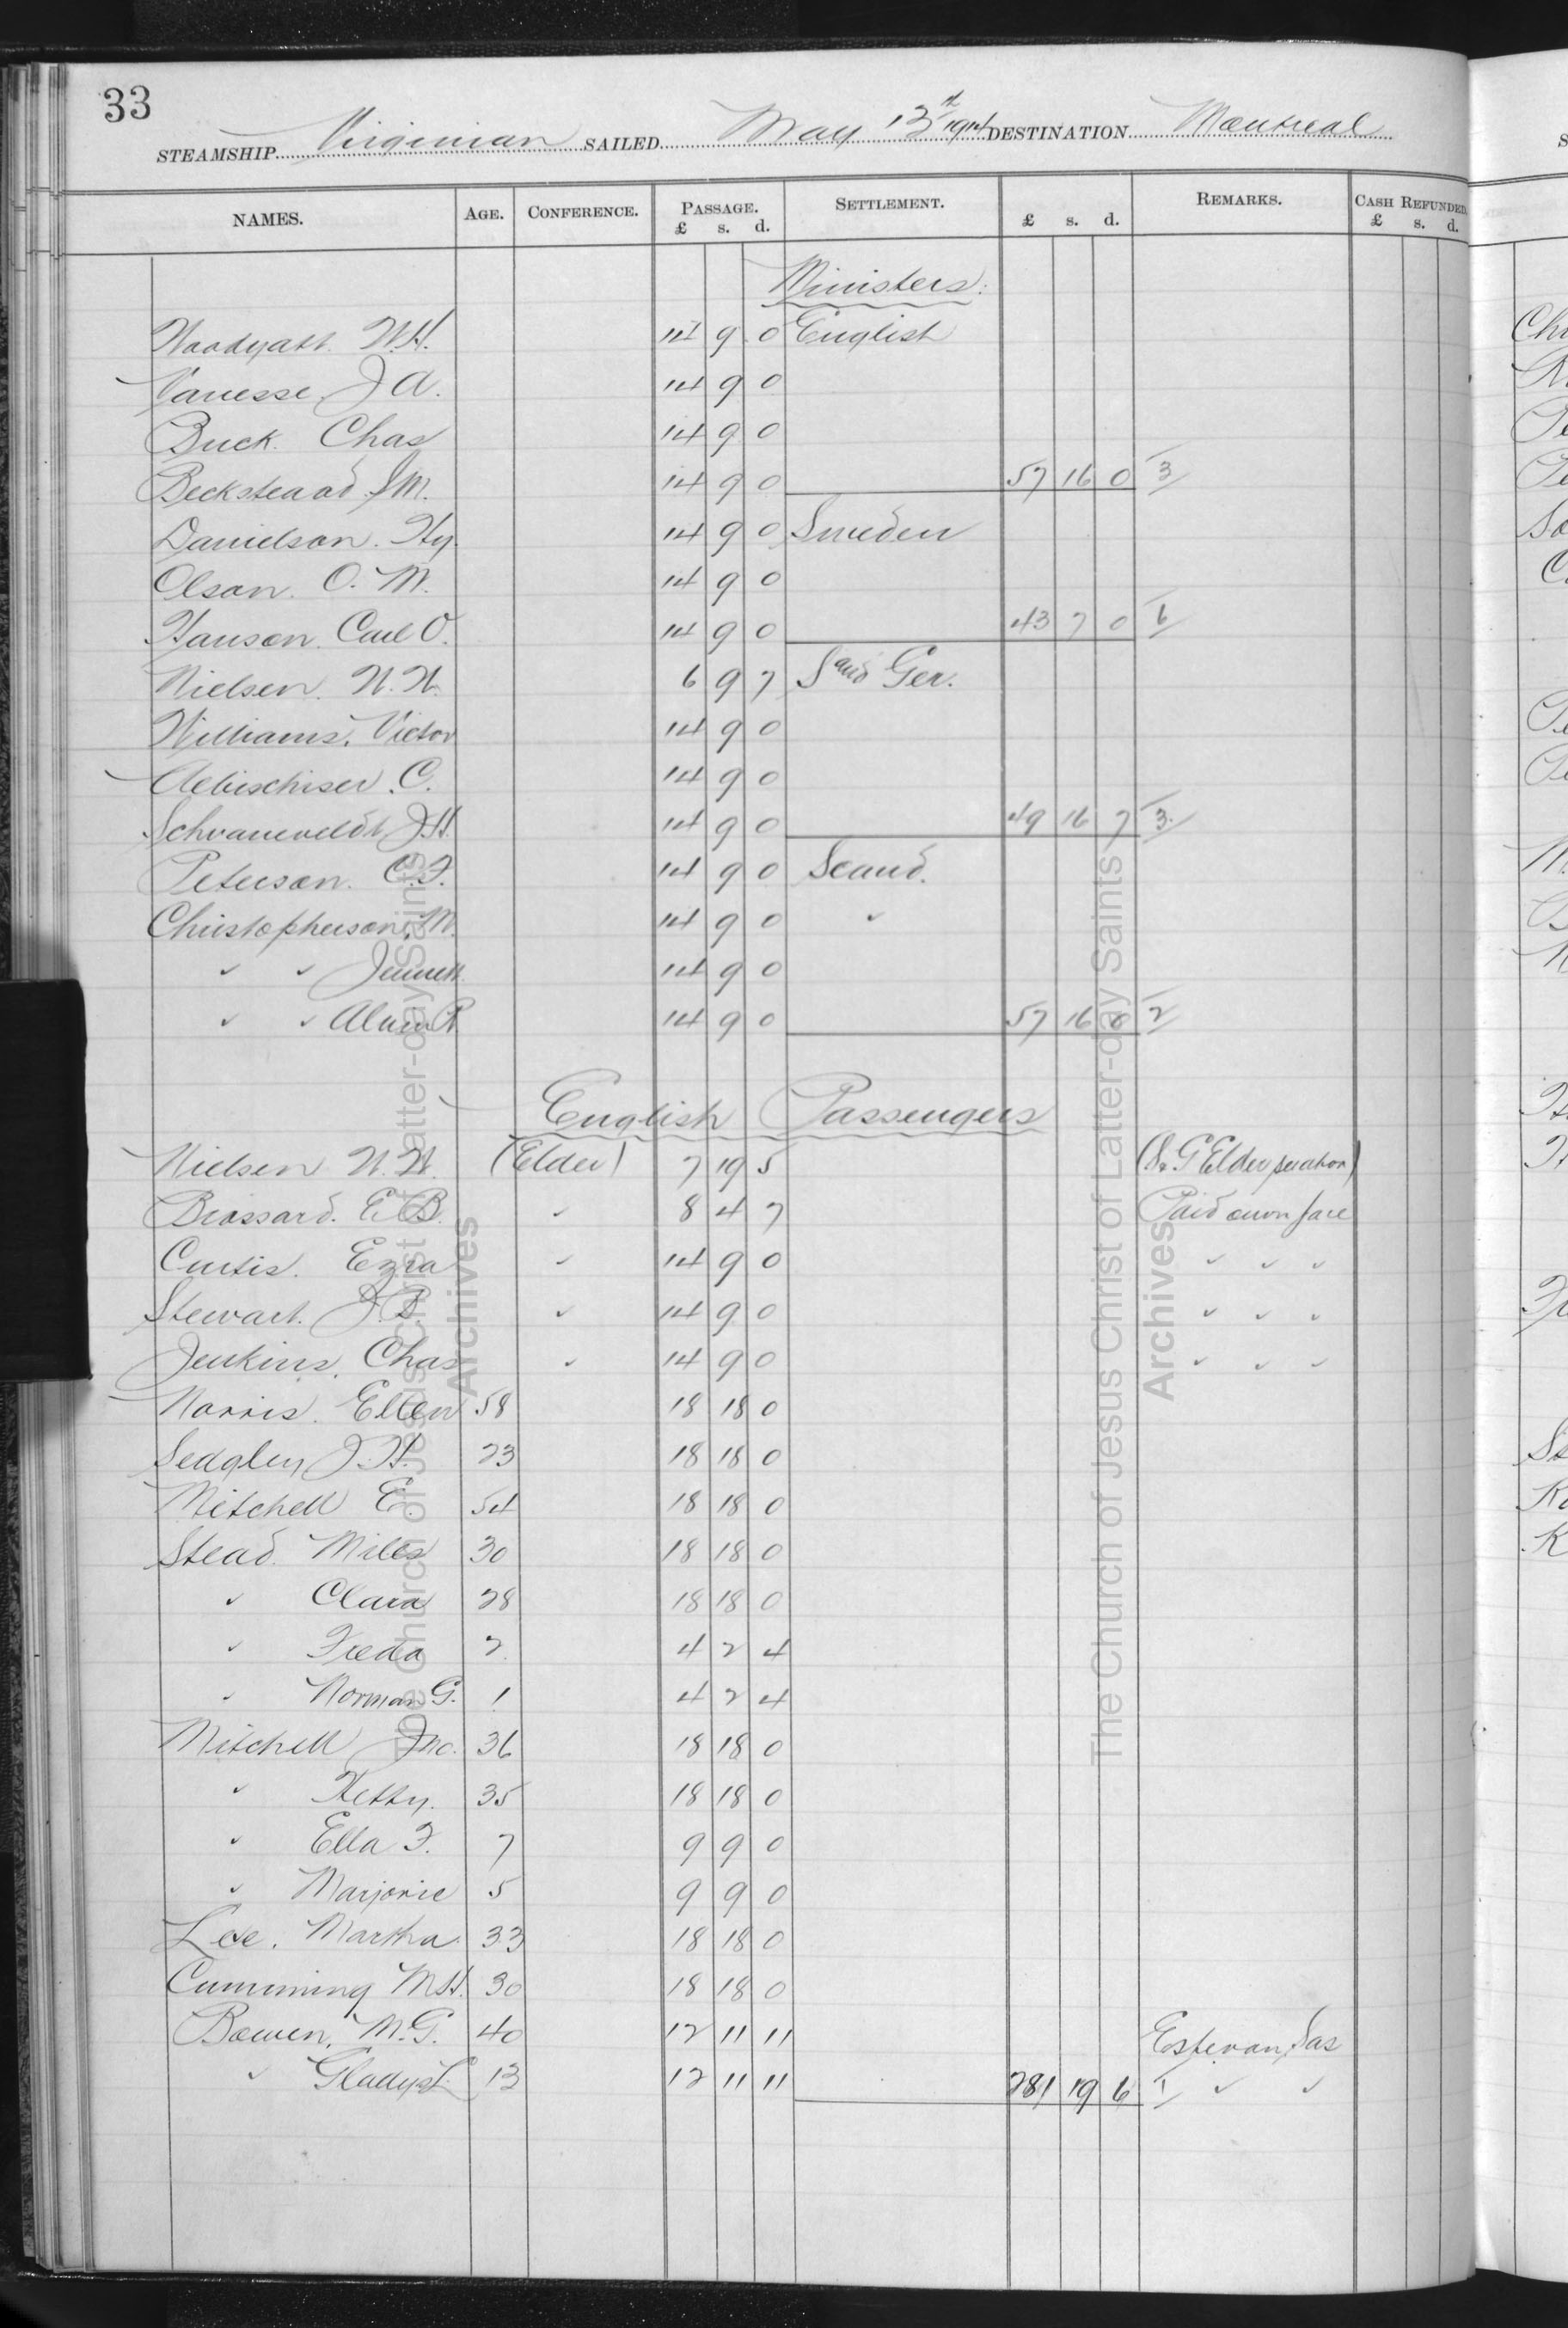 33
STEAMSHIP Virginian SAILED May 13th 1914 DESTINATION Montreal
NAMES. AGE. CONFERENCE. PASSAGE. £ s. d. SETTLEMENT. £ s. d. REMARKS. CASH REFUNDED. £ s. d.
Ministers:
Woodyatt W.H. 14 9 0 English
Vanesse J A. 14 9 0
Buck. Chas 14 9 0
Beckstead J M. 14 9 0 57 16 0 3
Danielson. Hy. 14 9 0 Sweden
Olson. O. M. 14 9 0
Hanson. Carl O. 14 9 0 43 7 0 6
Nielsen. N. N. 6 9 7 S and Ger.
Williams. Victor 14 9 0
Aebischiser. C. 14 9 0
Schvaneveldt J H. 14 9 0 49 16 7 3
Peterson. C. F. 14 9 0 Scand.
Christopherson. M. 14 9 0 "
" " 14 9 0
" " 14 9 0 57 16 0 2
English Passengers
Nielsen N. N. (Elder) 7 19 5 (S. G Elder see above)
Brossard. E B. " 8 4 7 Paid own fare
Curtis. Ezra " 14 9 0 " " "
Stewart. J. B. " 14 9 0 " " "
Jenkins. Chas " 14 9 0 " " "
Norris. Ellen 58 18 18 0
Sedgley J. H. 23 18 18 0
Mitchell E. 54 18 18 0
Stead. Miles 30 18 18 0
" Clara 28 18 18 0
" Freda 2 4 2 4
" Norman G. 1 4 2 4
Mitchell Jno. 36 18 18 0
" Hetty. 35 18 18 0
" Ella F. 7 9 9 0
" Marjorie 5 9 9 0
Lee. Martha 33 18 18 0
Cumming M H. 30 18 18 0
Bowen. M. G. 40 12 11 11 Estevan Sas
" Gladys L 13 12 11 11 281 19 6 1 " "
The Church of Jesus Christ of Latter-day Saints
Archives
The Church of Jesus Christ of Latter-day Saints
Archives